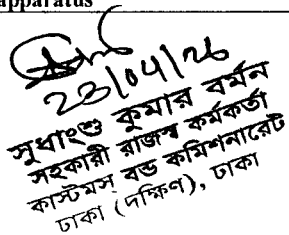 apparatus
23/04/26
সুধাংশু কুমার বর্মন
সহকারী রাজস্ব কর্মকর্তা
কাস্টমস্ বন্ড কমিশনারেট
ঢাকা (দক্ষিণ), ঢাকা